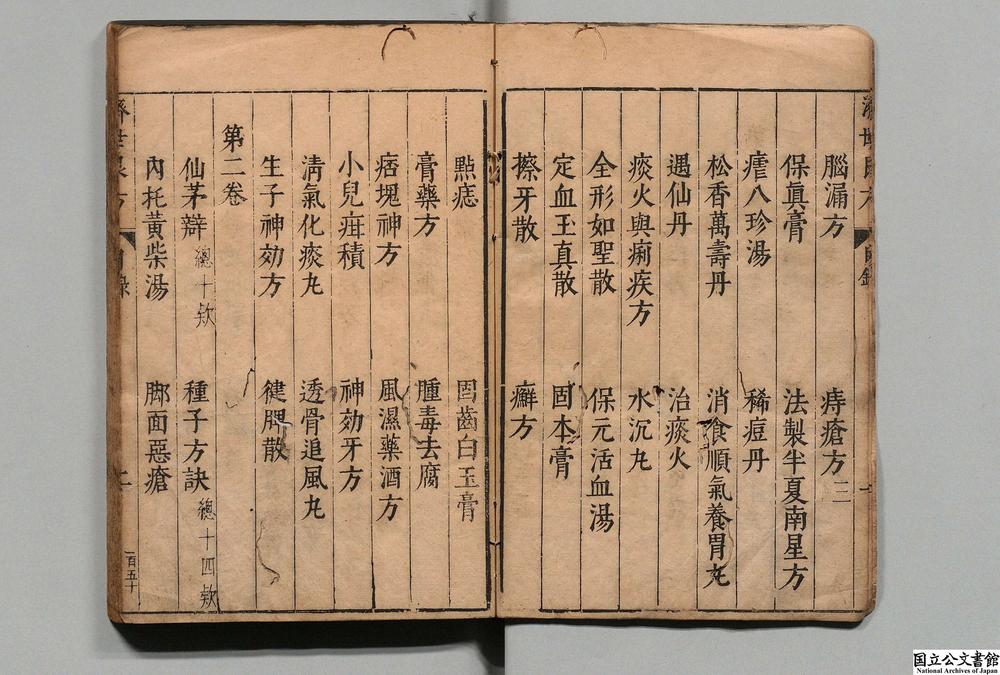 腦漏方 痔瘡方三
保眞膏 法製半夏南星方
瘧八珍湯 稀痘丹
松香萬壽丹 消食順氣養胃丸
遇仙丹 治痰火
痰火與痢疾方 水沉丸
全形如聖散 保元活血湯
定血玉真散 固本膏
擦牙散 癬方
點痣 固齒白玉膏
膏藥方 腫毒去腐
痞塊神方 風濕藥酒方
小兒疳積 神効牙方
淸氣化痰丸 透骨追風丸
生子神効方 健脾散
第二卷
仙茅辯 總十欸 種子方訣 總十四欸
內托黃柴湯 脚面惡瘡
一百五十
国立公文書館
National Archives of Japan